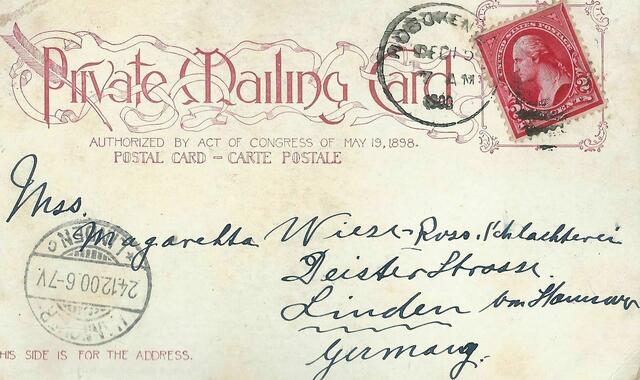 Private Mailing Card
AUTHORIZED BY ACT OF CONGRESS OF MAY 19, 1898.
POSTAL CARD – CARTE POSTALE
HOBOKEN
DEC 1
7 AM
1900
UNITED STATES POSTAGE
CENTS
Mss.
Magarehta Wiese-Ross-Schlachterei
Deister Strasse.
Linden von Hannover
Germany.
HANNOVER
24.12.00.6-7V.
LINDEN
HIS SIDE IS FOR THE ADDRESS.